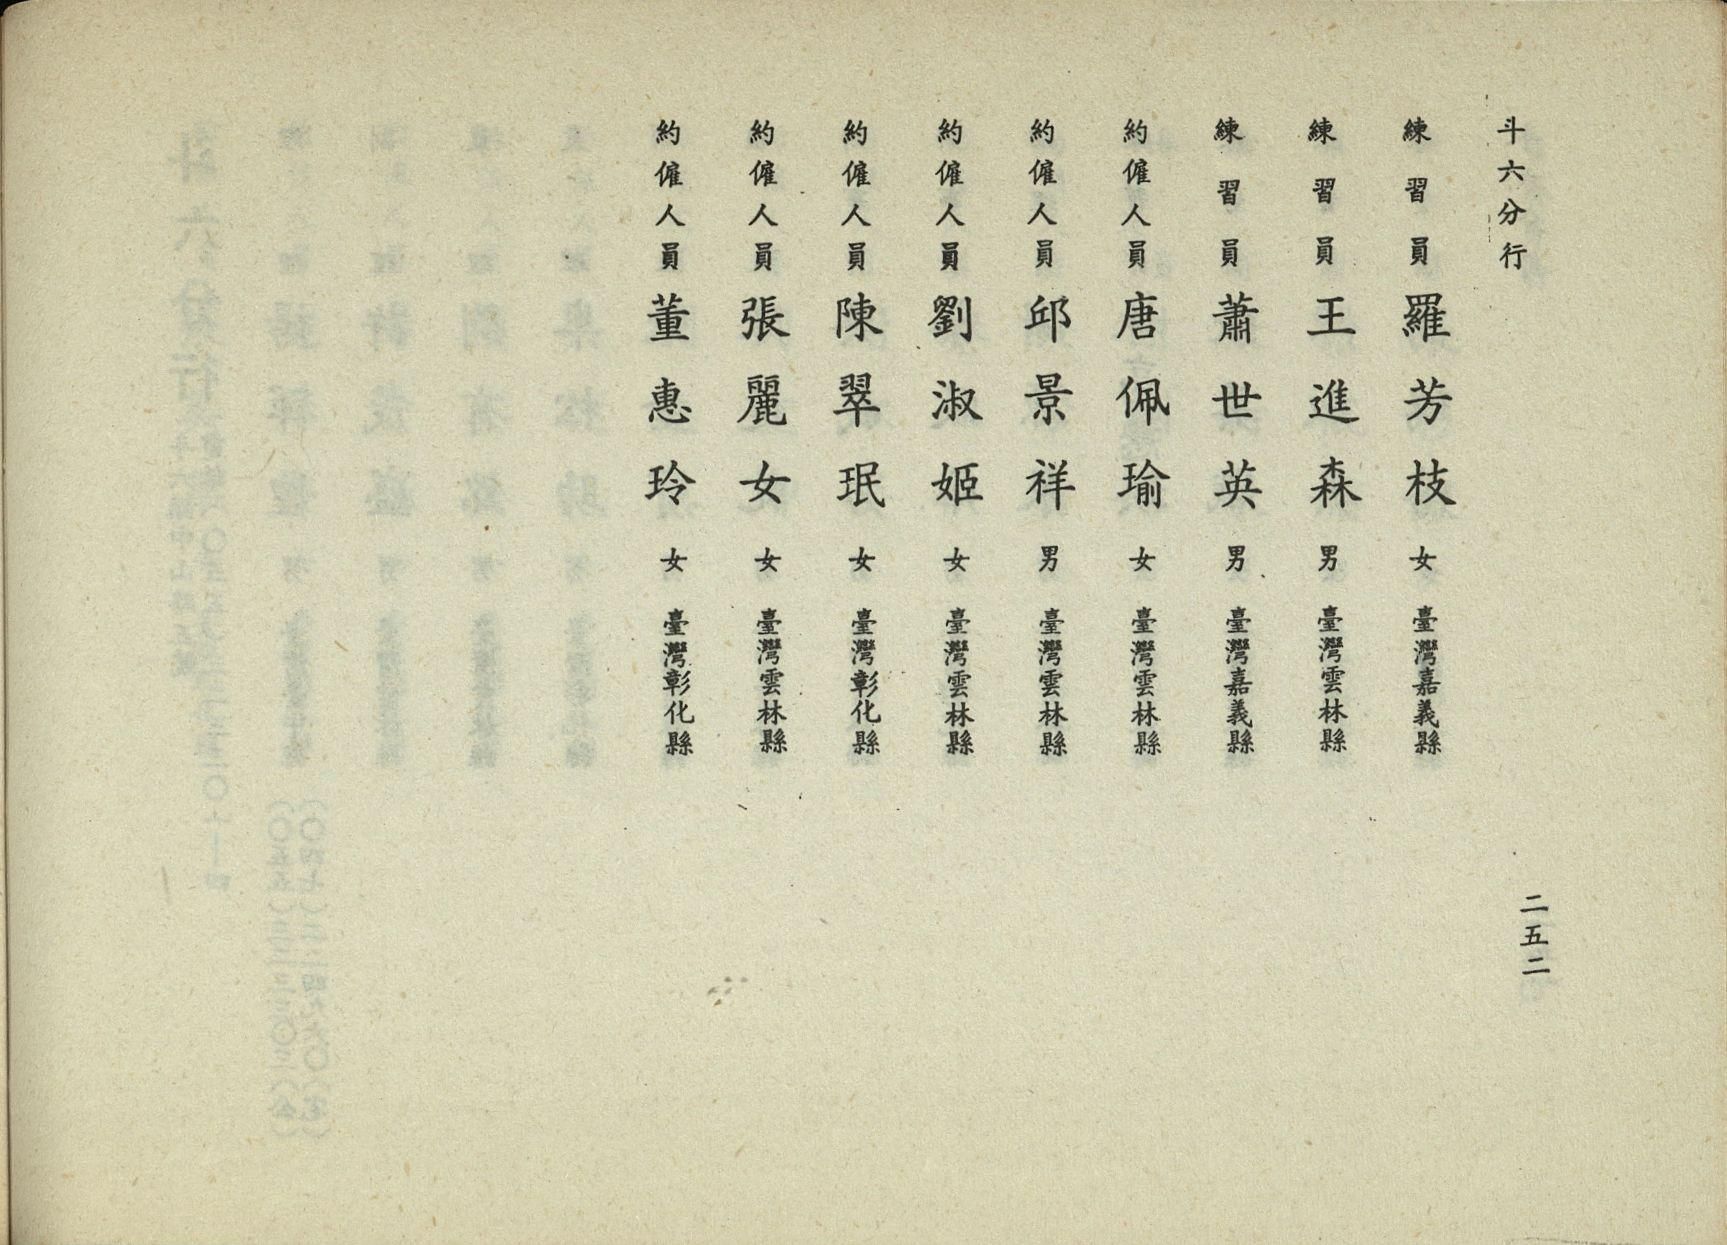 斗六分行
練習員 羅芳枝 女 臺灣嘉義縣
練習員 王進森 男 臺灣雲林縣
練習員 蕭世英 男 臺灣嘉義縣
約僱人員 唐佩瑜 女 臺灣雲林縣
約僱人員 邱景祥 男 臺灣雲林縣
約僱人員 劉淑姬 女 臺灣雲林縣
約僱人員 陳翠珉 女 臺灣彰化縣
約僱人員 張麗女 女 臺灣雲林縣
約僱人員 董惠玲 女 臺灣彰化縣
二五二